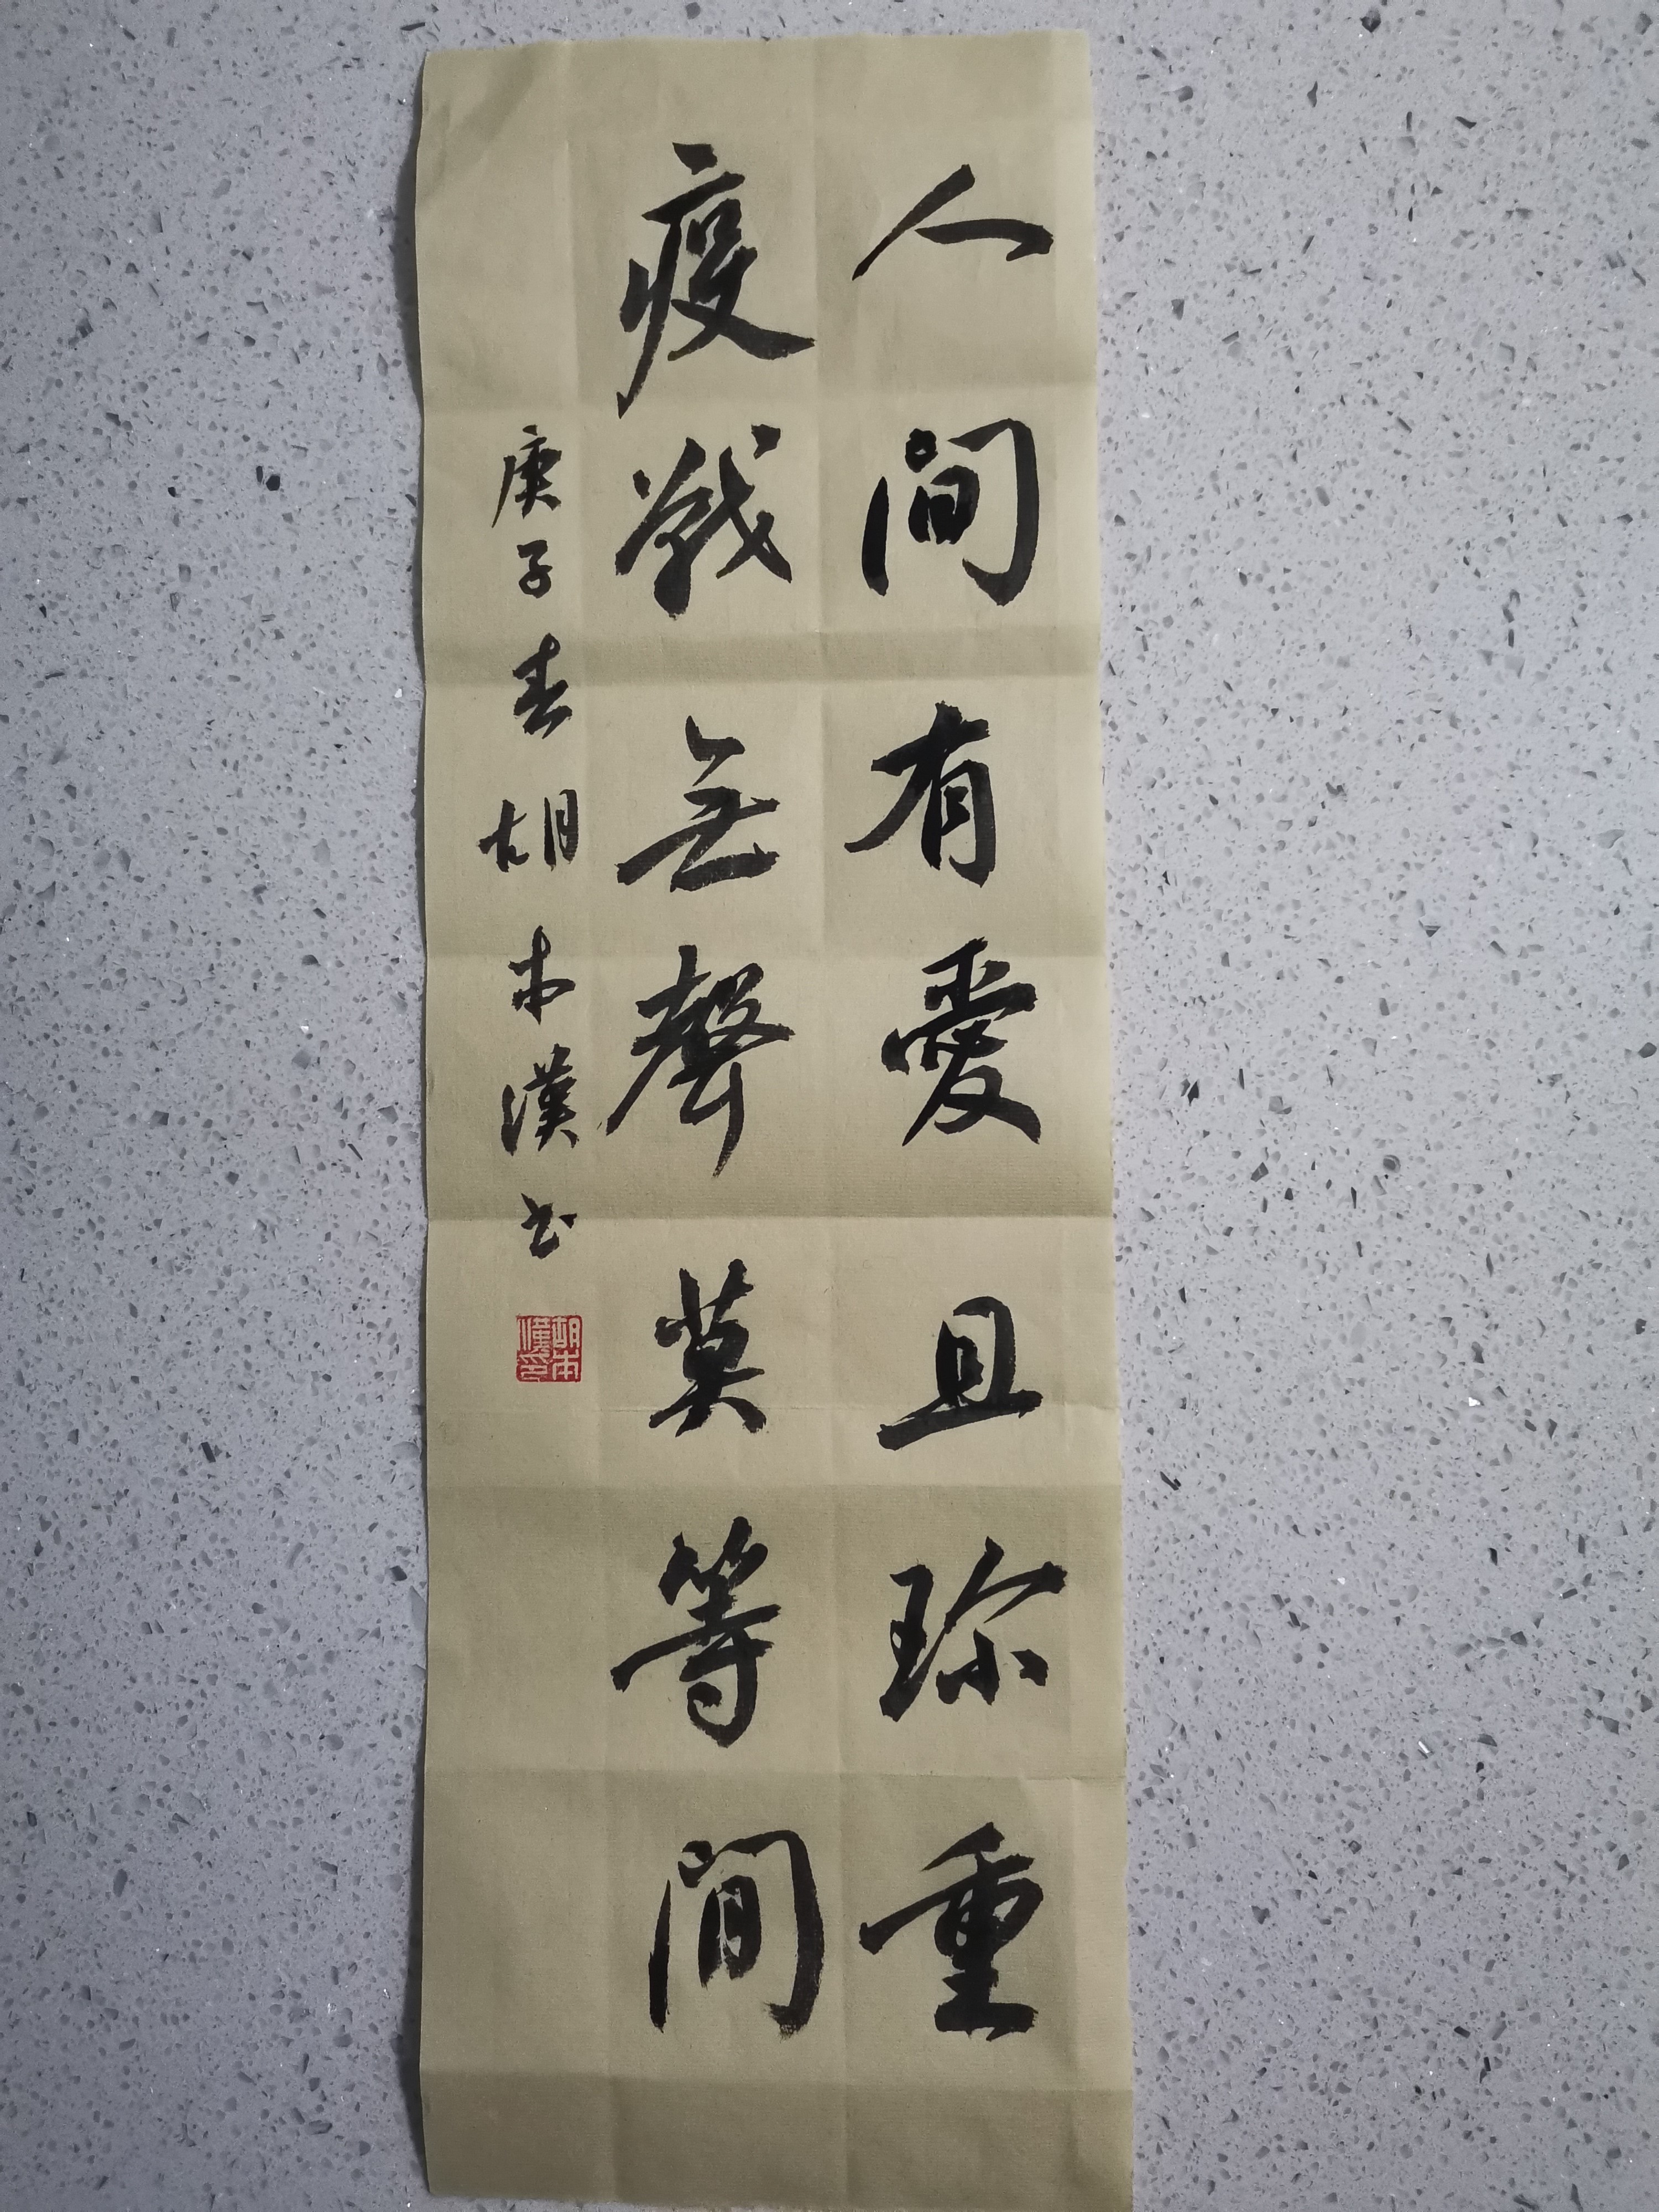 人間有愛且珎重
疫戰無聲莫等閒
庚子春胡本漢书
胡本漢印